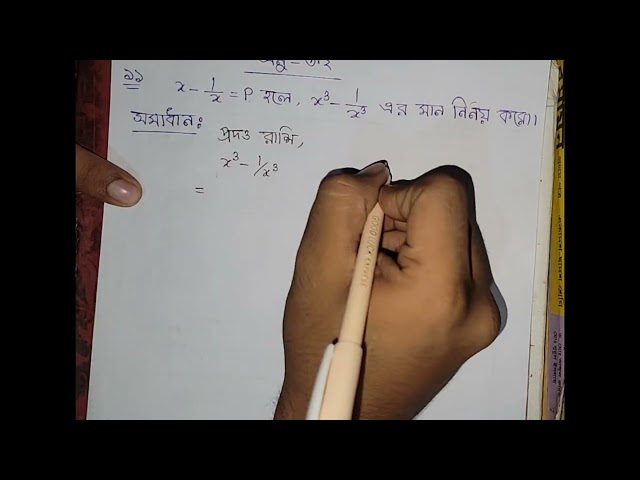 ১১ x - 1/x = P হলে, x³ - 1/x³ এর মান নির্নয় করো।
সমাধান:
প্রদত্ত রাশি,
x³ - 1/x³
=